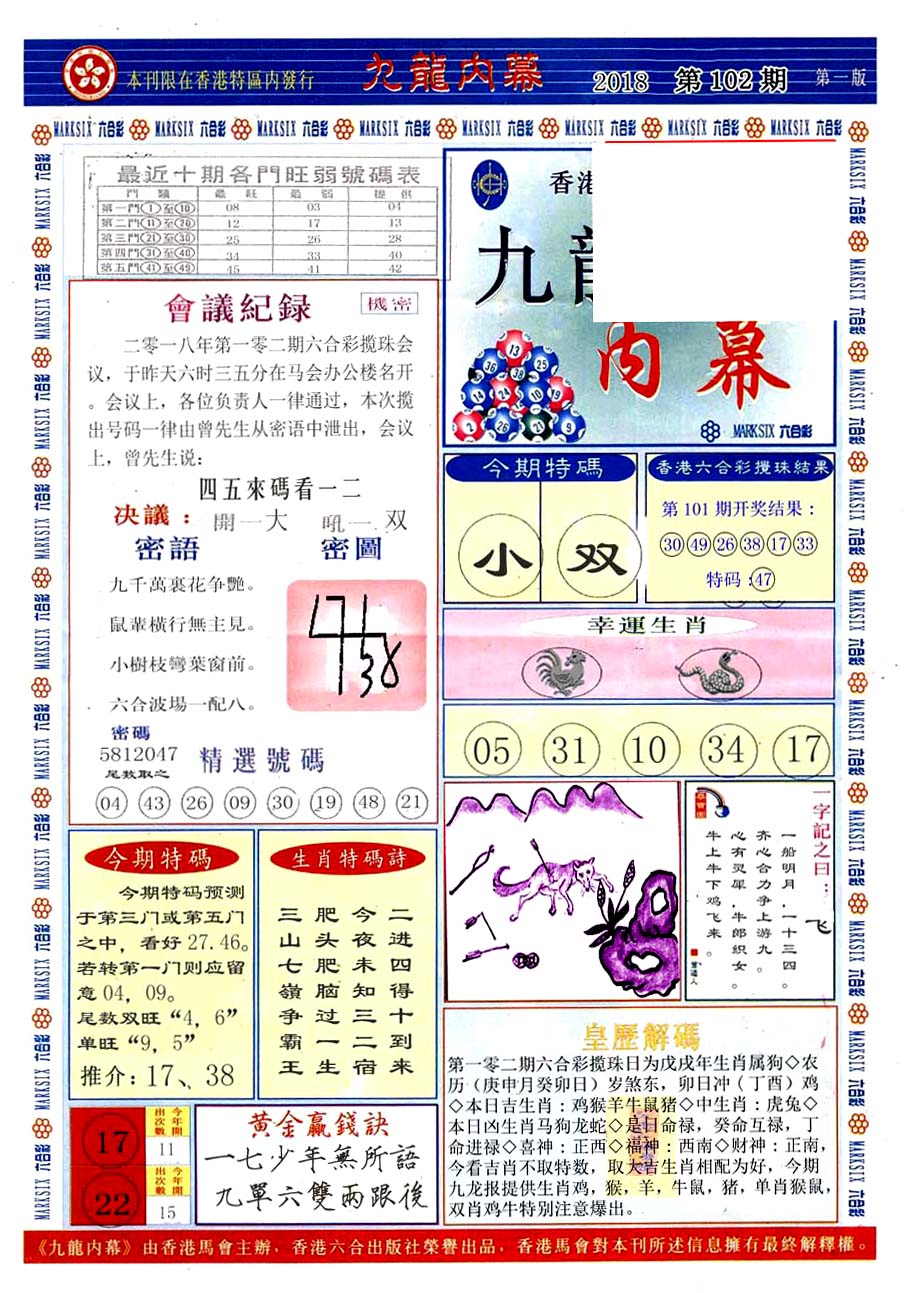 本刊限在香港特區內發行
九龍內幕
2018 第102期
第一版
MARKSIX 六合彩 MARKSIX 六合彩 MARKSIX 六合彩 MARKSIX 六合彩 MARKSIX 六合彩 MARKSIX 六合彩 MARKSIX 六合彩 MARKSIX 六合彩
最近十期各門旺弱號碼表
門類 最旺 最弱 提供
第一門①至⑩ 08 03 04
第二門⑪至⑳ 12 17 13
第三門㉑至㉚ 25 26 28
第四門㉛至㊵ 34 33 40
第五門㊶至㊾ 45 41 42
會議紀録
機密
二零一八年第一零二期六合彩揽珠会
议，于昨天六时三五分在马会办公楼名开
。会议上，各位负责人一律通过，本次揽
出号码一律由曾先生从密语中泄出，会议
上，曾先生说：
四五來碼看一二
决議： 開一大 吼一双
密語 密圖
九千萬裏花争艷。
鼠輩橫行無主見。
小樹枝彎葉窗前。
六合波場一配八。
38
密碼
5812047
尾数取之
精選號碼
04 43 26 09 30 19 48 21
香港
九
内幕
13 36 38 14 24 10 19 2 26 9
MARKSIX 六合彩
今期特碼
小 双
香港六合彩攪珠結果
第101期开奖结果：
30 49 26 38 17 33
特码：47
幸運生肖
05 31 10 34 17
一字記之曰：飞
一船明月，一十三四。
齐心合力争上游九。
心有灵犀，牛郎织女。
牛上牛下鸡飞来。
今期特碼
今期特码预测
于第三门或第五门
之中，看好27.46。
若转第一门则应留
意04，09。
尾数双旺“4，6”
单旺“9，5”
推介：17、38
生肖特碼詩
二进四得十到来
今夜未知三二宿
肥头肥脑过一生
三山七嶺争霸王
17 今年開出次數 11
22 今年開出次數 15
黃金贏錢訣
一七少年無所語
九單六雙兩跟後
皇歷解碼
第一零二期六合彩揽珠日为戊戌年生肖属狗◇农
历（庚申月癸卯日）岁煞东，卯日冲（丁酉）鸡
◇本日吉生肖：鸡猴羊牛鼠猪◇中生肖：虎兔◇
本日凶生肖马狗龙蛇◇是日命禄，癸命互禄，丁
命进禄◇喜神：正西◇福神：西南◇财神：正南，
今看吉肖不取特数，取大吉生肖相配为好，今期
九龙报提供生肖鸡，猴，羊，牛鼠，猪，单肖猴鼠，
双肖鸡牛特别注意爆出。
《九龍内幕》由香港馬會主辦，香港六合出版社榮譽出品，香港馬會對本刊所述信息擁有最終解釋權。